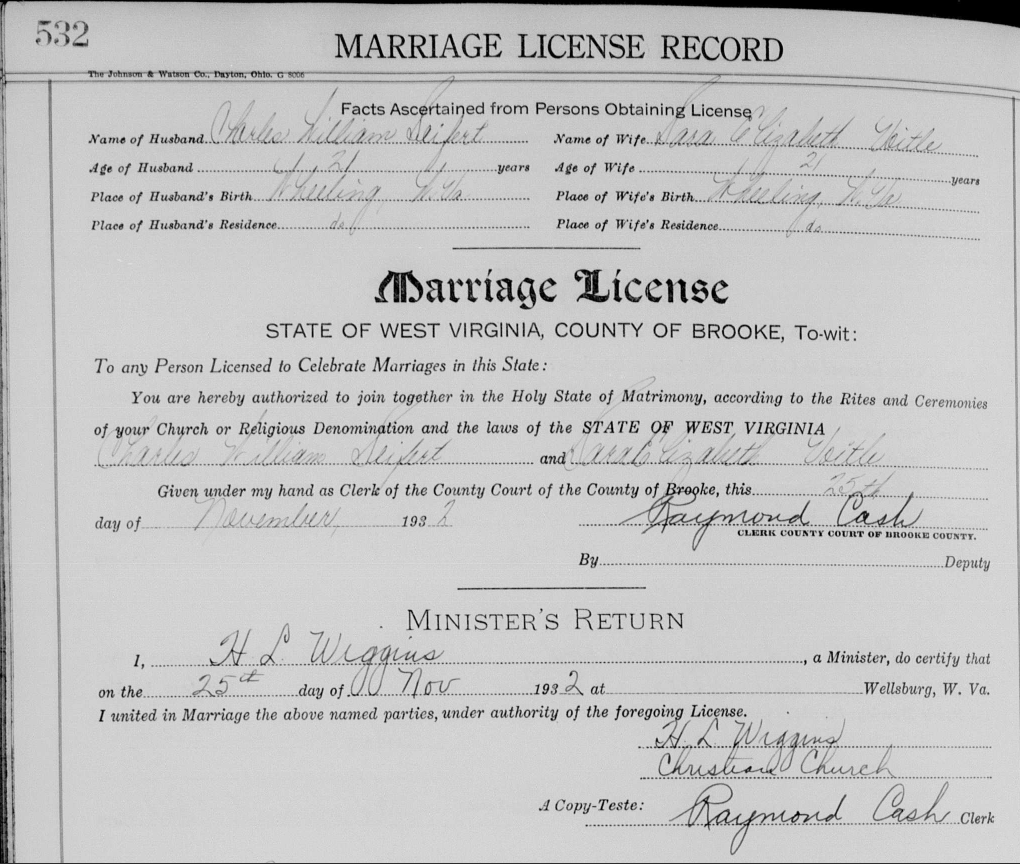 532
MARRIAGE LICENSE RECORD
The Johnson & Watson Co., Dayton, Ohio. G 8006
Facts Ascertained from Persons Obtaining License
Name of Husband Charles William Seifert Name of Wife Sara Elizabeth
Age of Husband 21 years Age of Wife 21 years
Place of Husband's Birth Wheeling, W. Va Place of Wife's Birth Wheeling, W. Va
Place of Husband's Residence do Place of Wife's Residence do
Marriage License
STATE OF WEST VIRGINIA, COUNTY OF BROOKE, To-wit:
To any Person Licensed to Celebrate Marriages in this State:
You are hereby authorized to join together in the Holy State of Matrimony, according to the Rites and Ceremonies
of your Church or Religious Denomination and the laws of the STATE OF WEST VIRGINIA
Charles William Seifert and Sara Elizabeth
Given under my hand as Clerk of the County Court of the County of Brooke, this 25th
day of November, 1932 Raymond Cash
CLERK COUNTY COURT OF BROOKE COUNTY.
By Deputy
MINISTER'S RETURN
I, H L Wiggins, a Minister, do certify that
on the 25th day of Nov 1932 at Wellsburg, W. Va.
I united in Marriage the above named parties, under authority of the foregoing License.
H L Wiggins
Christian Church
A Copy-Teste: Raymond Cash Clerk